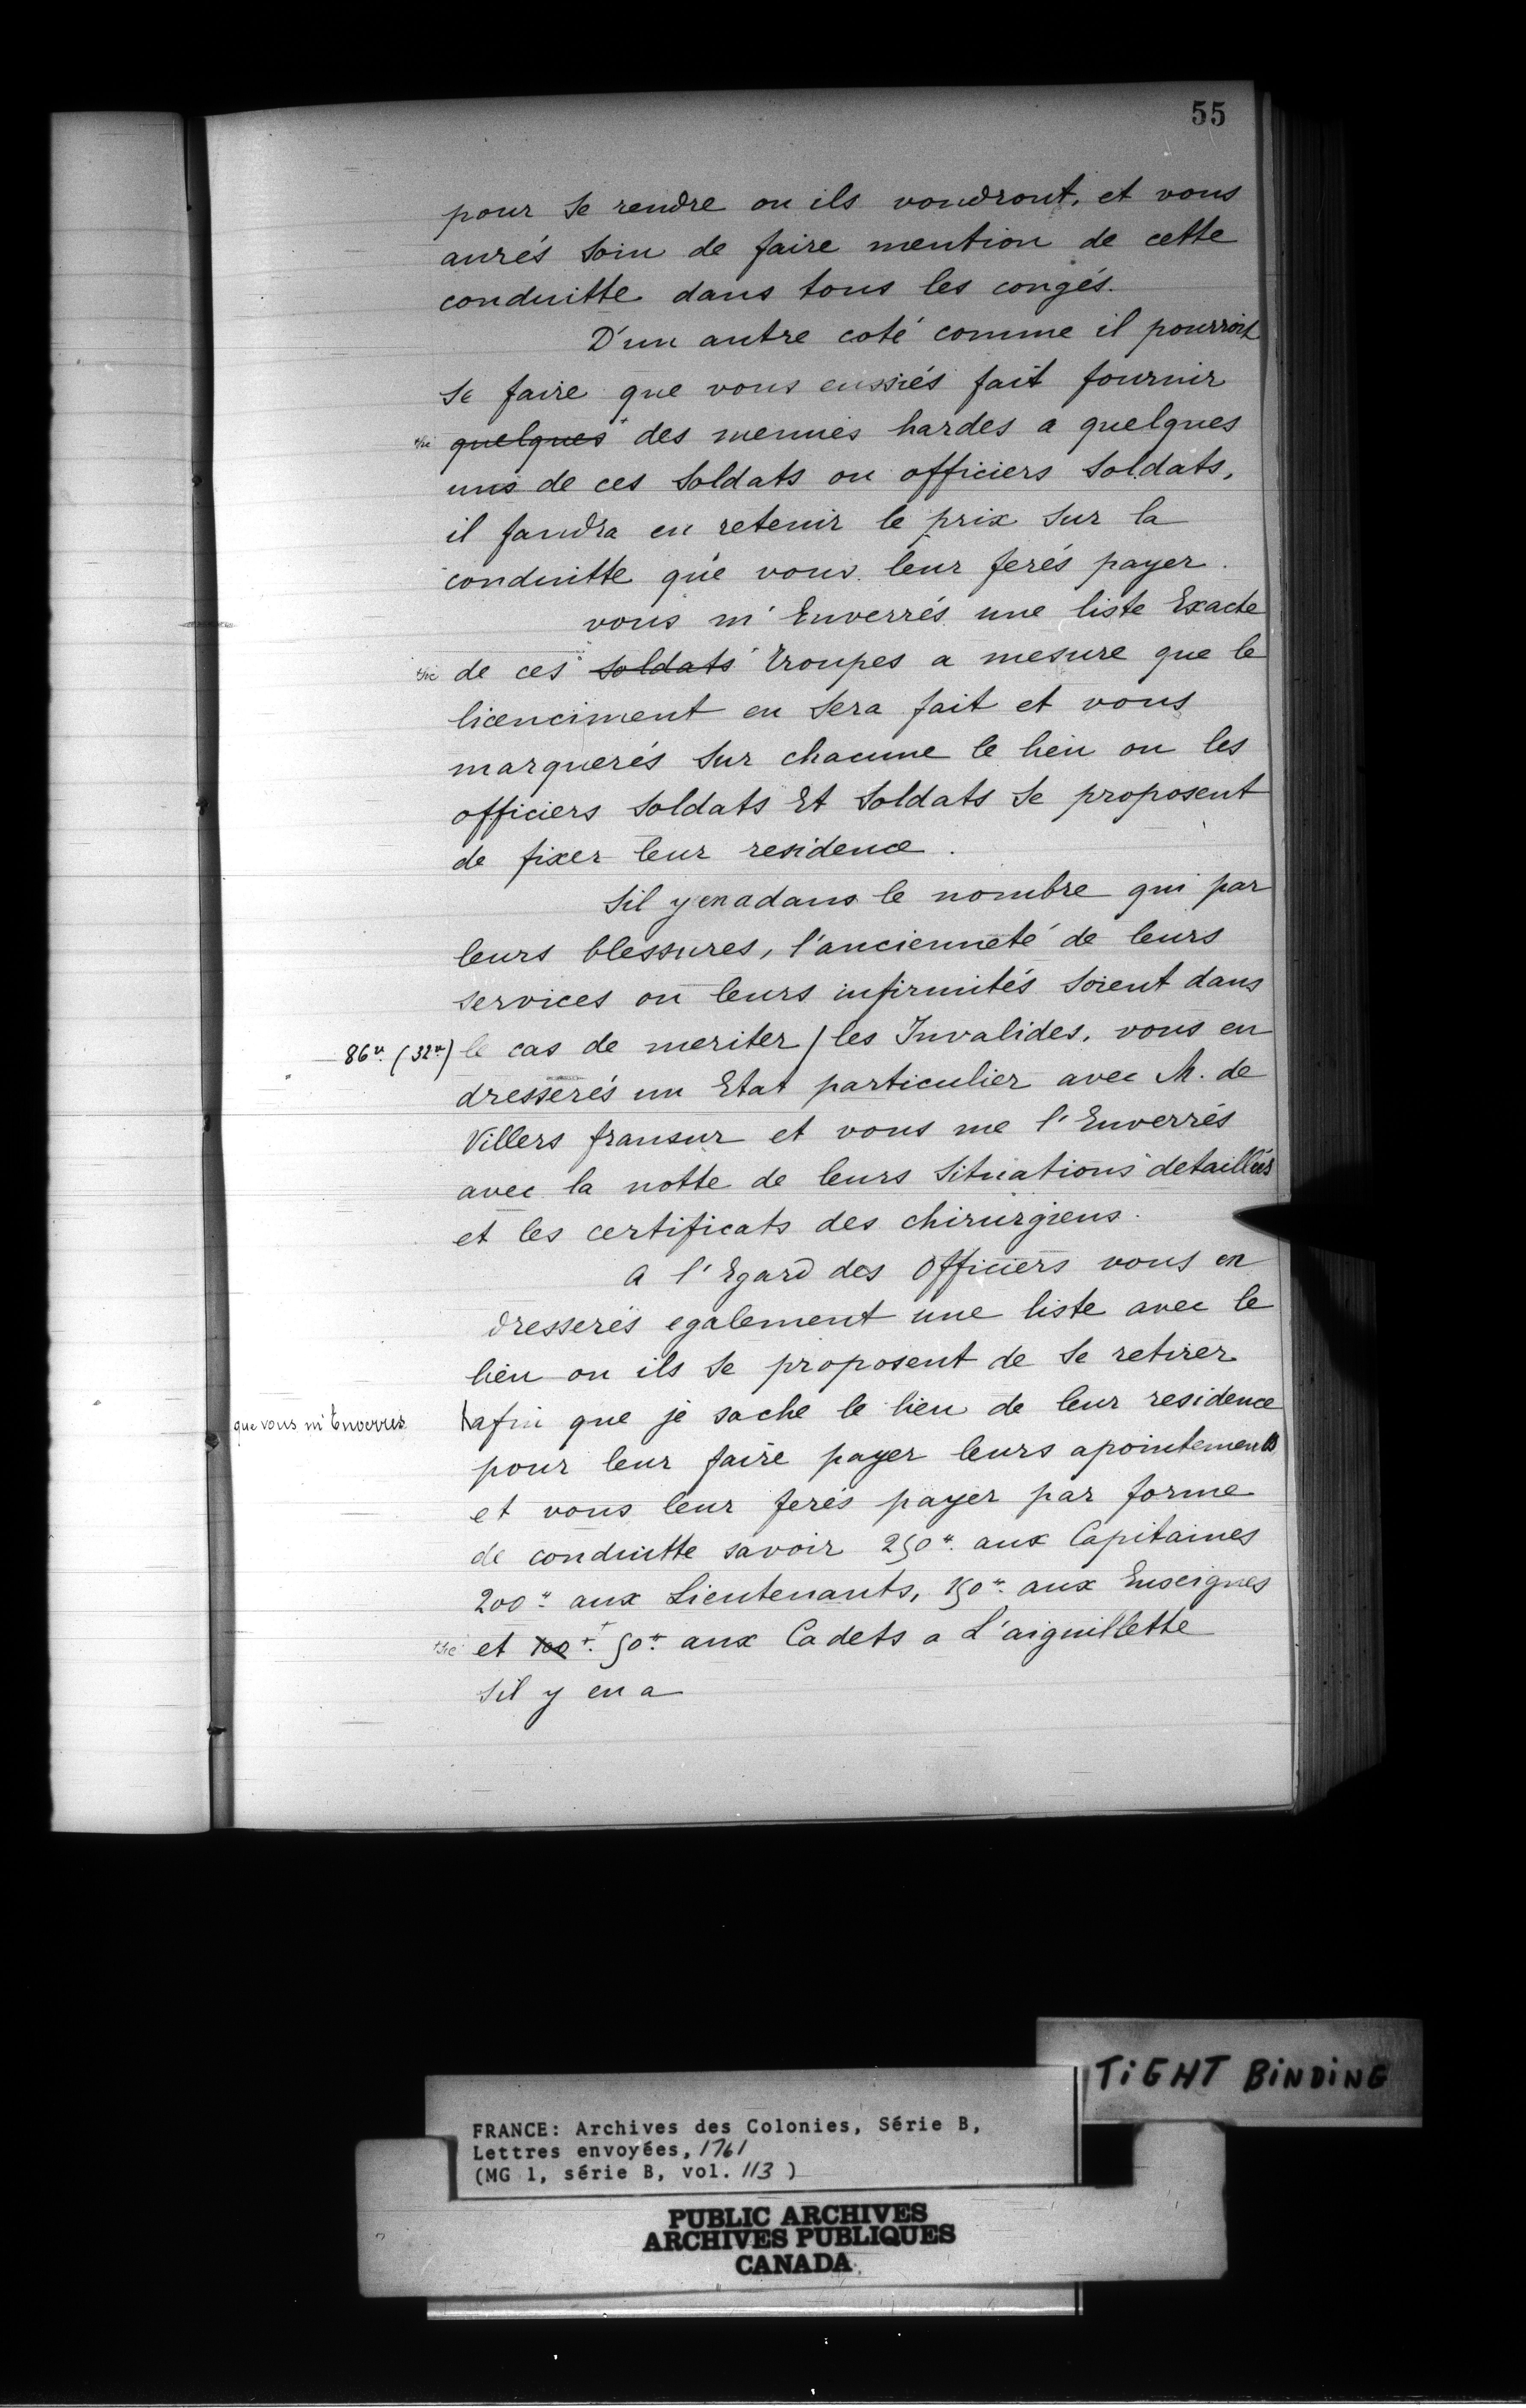 55
pour se rendre ou ils voudront, et vous
aurés soin de faire mention de cette
conduitte dans tous les congés.
D'un autre coté comme il pourroit
se faire que vous eussiés fait fournir
+sic quelques + des menues hardes a quelques
uns de ces soldats ou officiers soldats,
il faudra en retenir le prix sur la
conduitte que vous leur ferés payer.
vous m'Enverrés une liste Exacte
+sic de ces soldats troupes a mesure que le
licenciment en sera fait et vous
marquerés sur chacune le lieu ou les
officiers soldats Et soldats se proposent
de fixer leur residence.
Sil y en a dans le nombre qui par
leurs blessures, l'ancienneté de leurs
services ou leurs infirmités soient dans
86vo (32vo) le cas de meriter / les Invalides, vous en
dresserés un Etat particulier avec M. de
Villers fransur et vous me l'Enverrés
avec la notte de leurs situations detaillées
et les certificats des chirurgiens.
a l'Egard des Officiers vous en
dresserés egalement une liste avec le
lieu ou ils se proposent de se retirer
que vous m'Enverrés \afin que je sache le lieu de leur residence
pour leur faire payer leurs apointements
et vous leur ferés payer par forme
de conduitte savoir 250tt aux Capitaines
200tt aux Lieutenants, 150tt aux Enseignes
+sic et 100tt + 50tt aux Cadets a L'aiguillette
sil y en a
TIGHT BINDING
FRANCE: Archives des Colonies, Série B,
Lettres envoyées, 1761
(MG 1, série B, vol. 113 )
PUBLIC ARCHIVES
ARCHIVES PUBLIQUES
CANADA